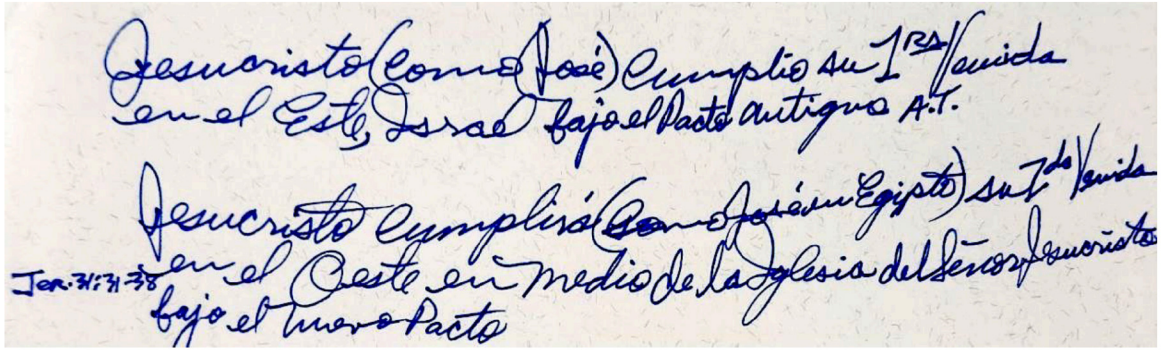 Jesucristo (como José) cumplio su 1RA Venida
en el Este, Israel bajo el Pacto antiguo A.T.
Jesucristo cumplirá (como José en Egipto) su 2da Venida
en el Oeste en medio de la Iglesia del Señor Jesucristo
Jer. 31:31-38
bajo el nuevo Pacto